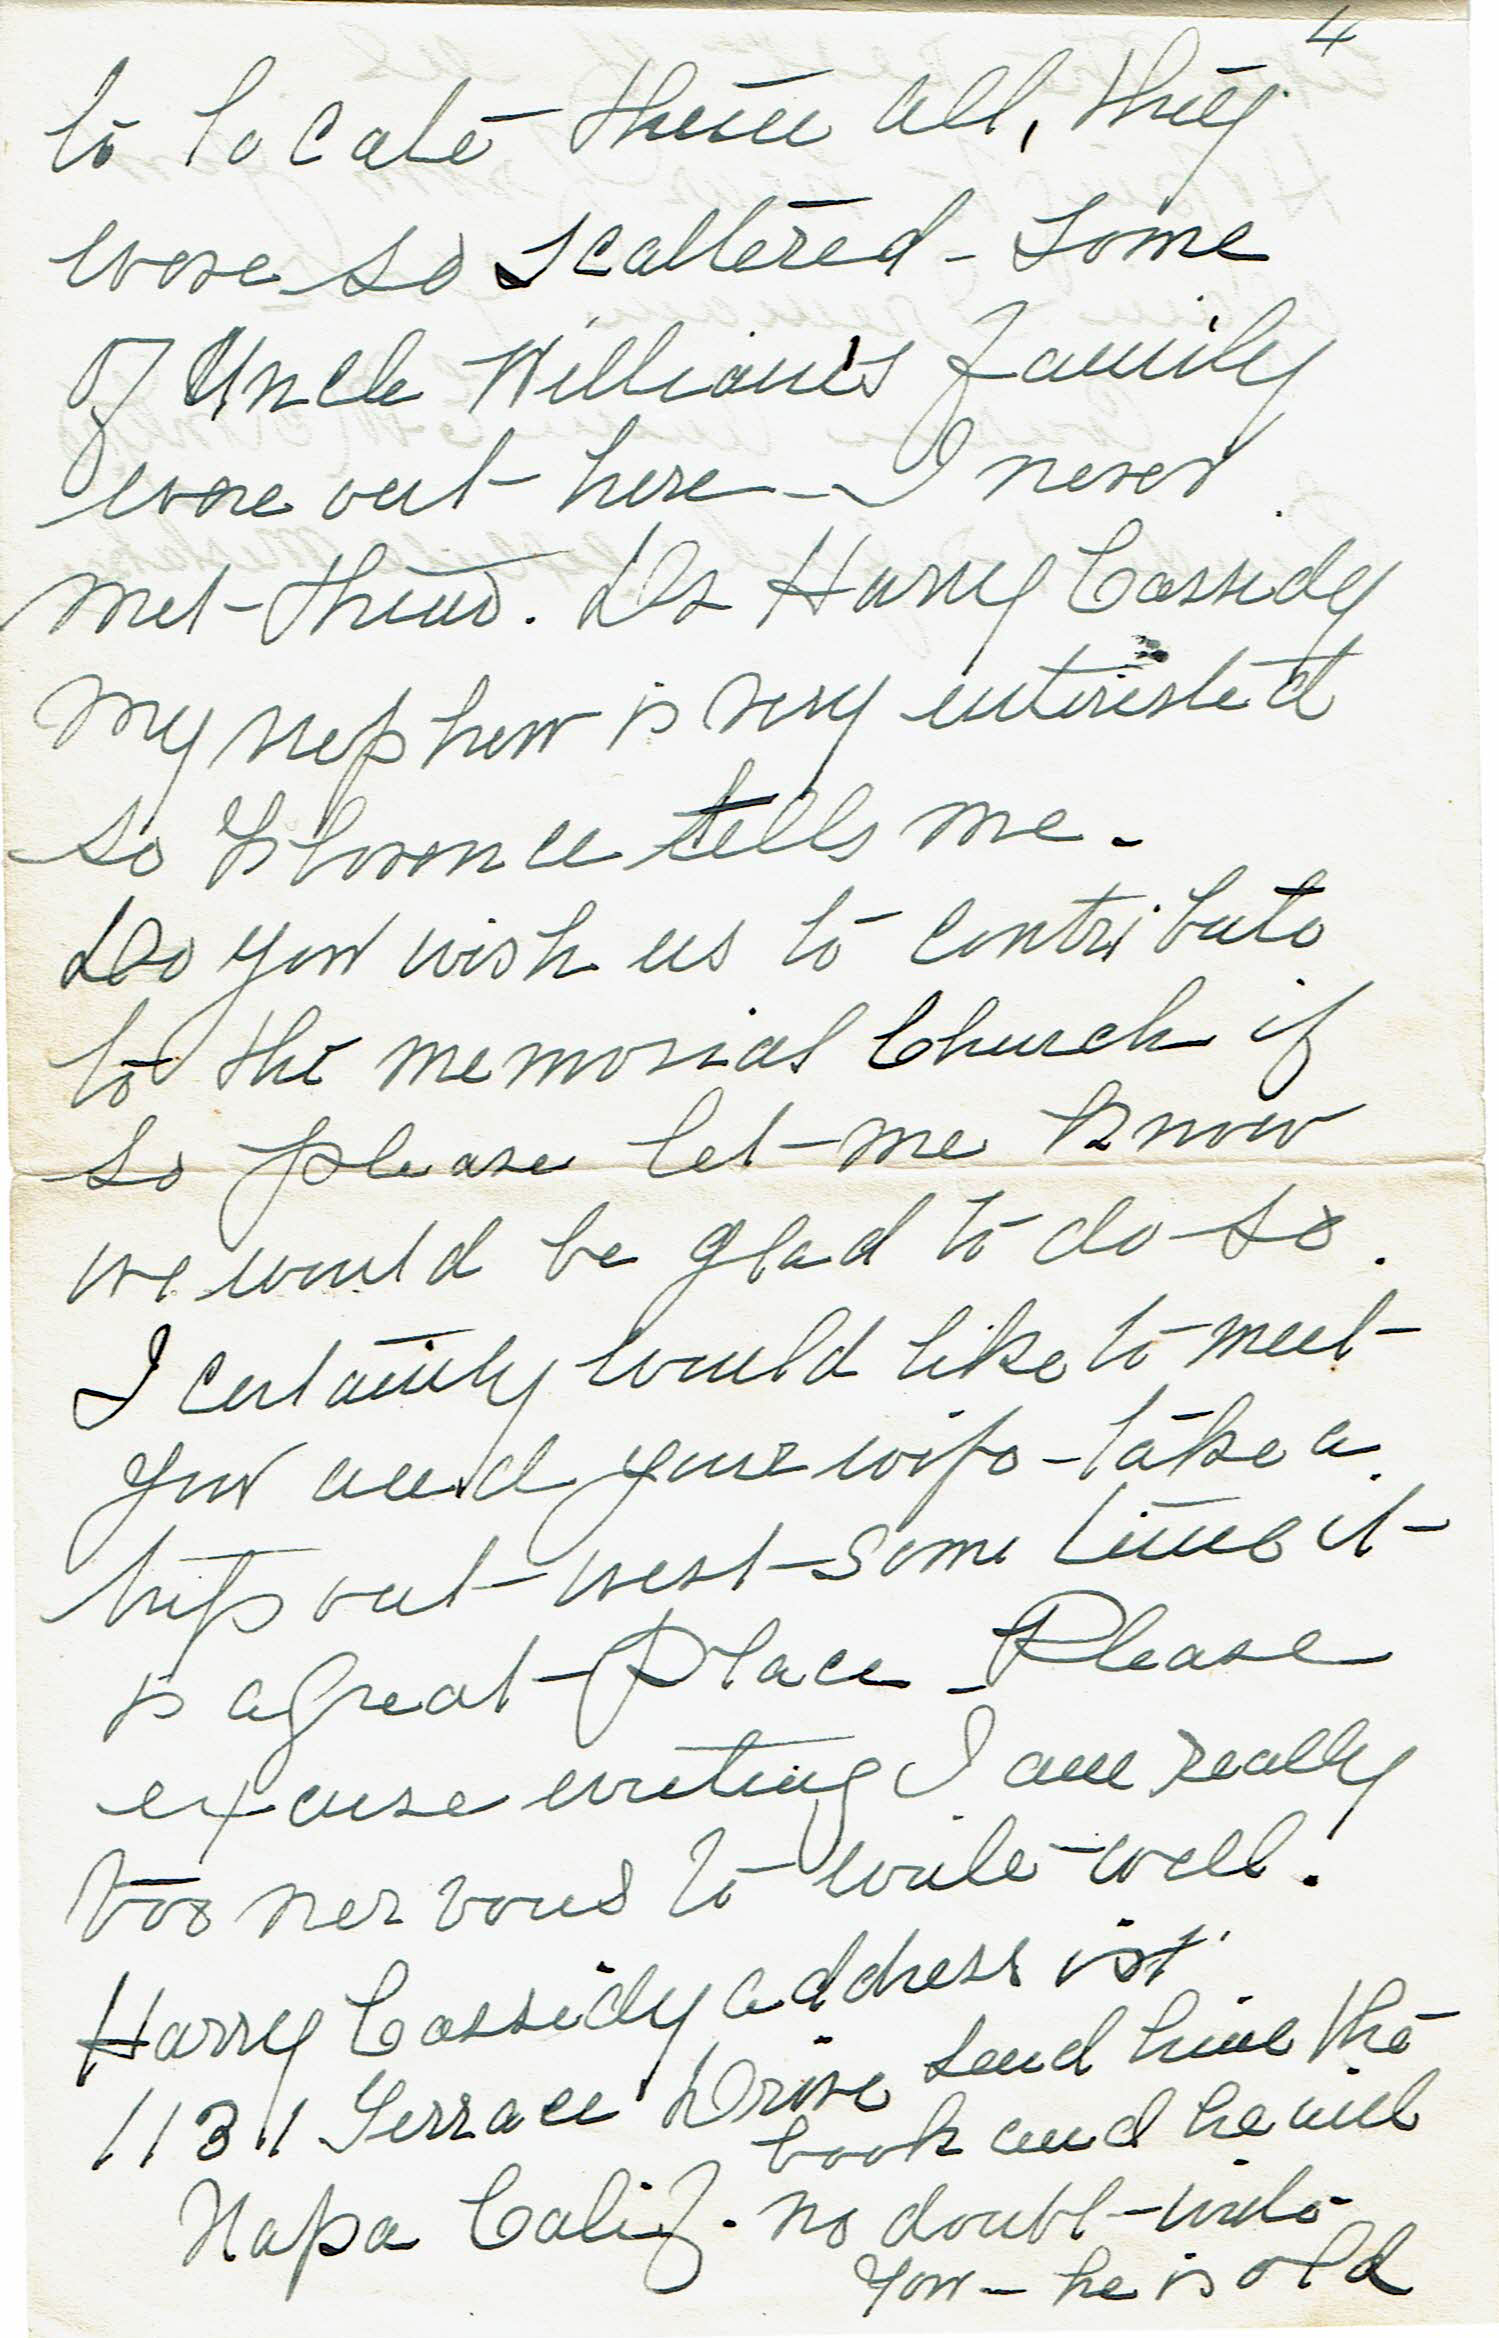 4
to locate them all, they
were so scattered - some
of Uncle William's family
were out here - I never
met them. Dr Harry Cassidy
my nephew is very interested
so Florence tells me.
Do you wish us to contribute
to the memorial Church if
so please let me know
we would be glad to do so.
I certainly would like to meet
you and your wife - take a
trip out west some time it
is a great place - Please
excuse writing I am really
too nervous to write well.
Harry Cassidy address is
1131 Terrace Drive send him the
book and he will
Napa Calif. no doubt write
you - he is old